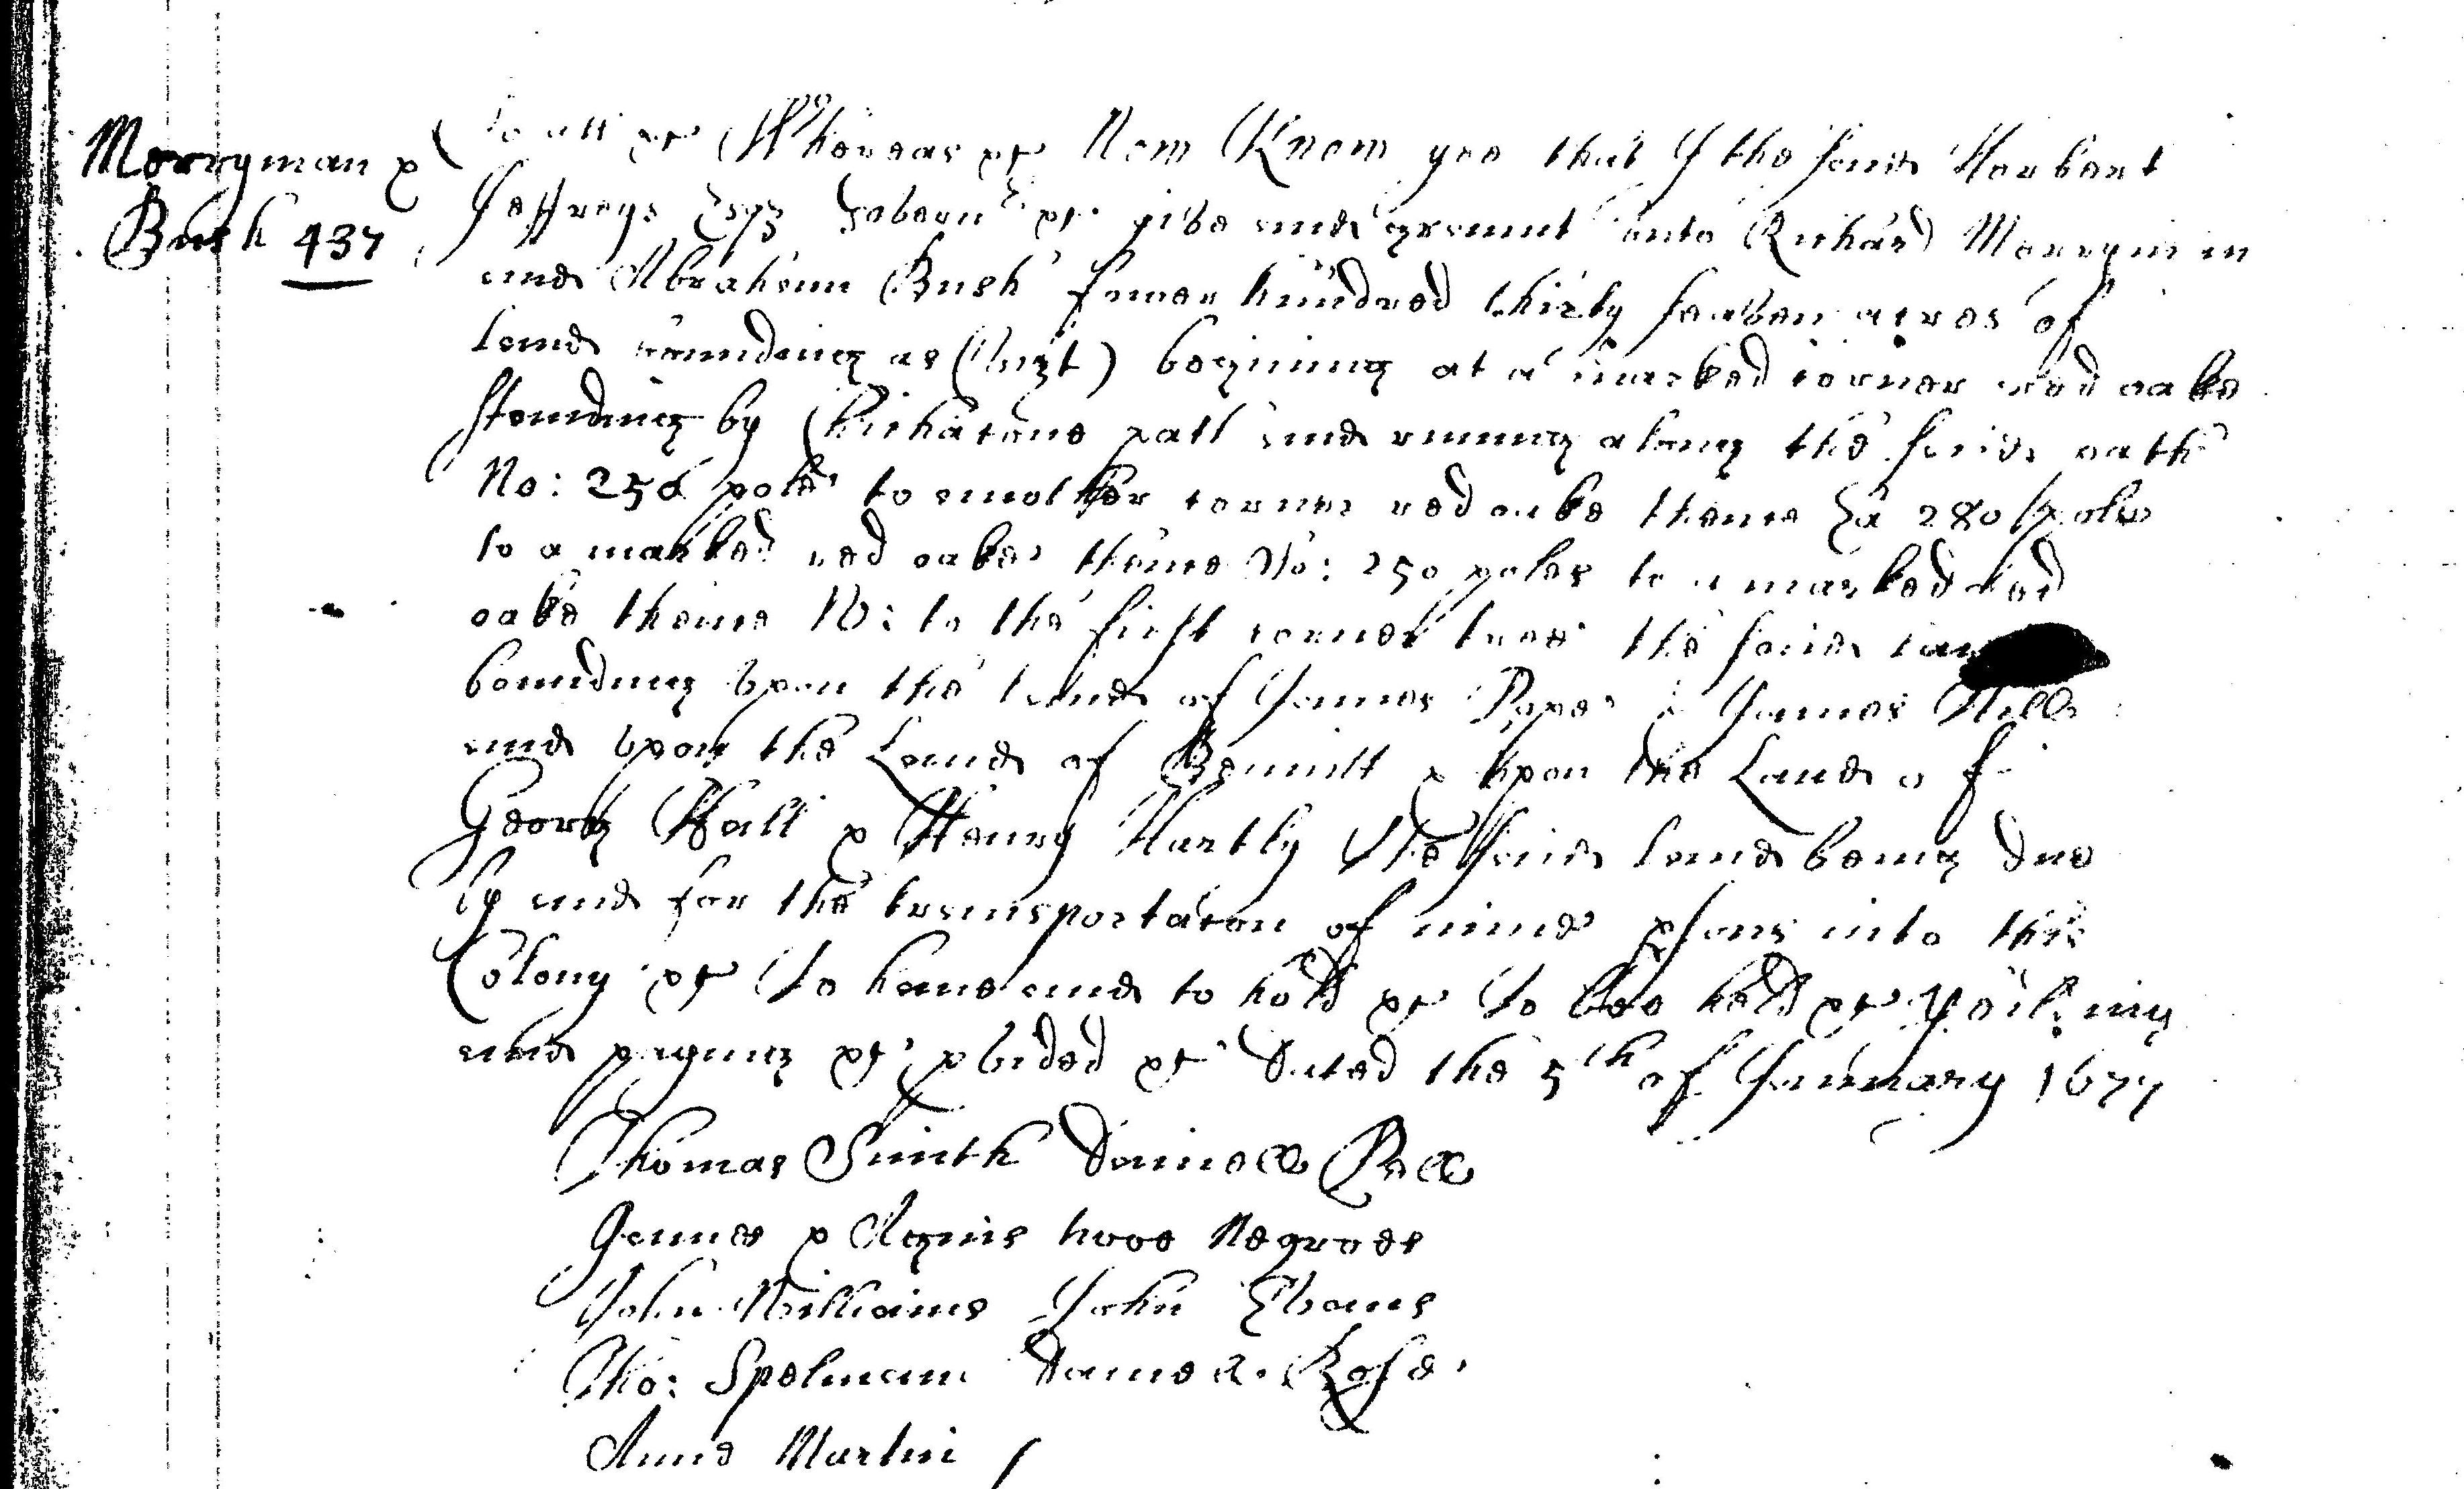 Merryman &
Bush 437
To all &c Whereas &c Now Know yee that I the said Herbert
Jeffreys Esqr Govern.r &c give and graunt unto Richard Merryman
and Abraham Bush fower hundred thirty seaven acres of
land bounding as (Vizt) begining at a marked corner red oake
standing by Chichatons path and runing along the said path
No: 256 pole to another corner red oake thence Ea 280 poles
to a marked red oake thence So: 250 poles to a marked red
oake thence W: to the first corner tree the said
bounding upon the land of James Pope & James Hill
and upon the Land of Bennitt & upon the Land of
Georg Hall & Henry Hartly the said land being due
by and for the transportacon of nine psons into this
Colony &c To have and to hold &c To bee held &c Yeilding
and paying &c pvided &c Dated the 5th of January 1677
Thomas Smith Daniell Bell
Jennee & Agnis twoe Negroes
John Williams John Evans
Tho: Spelman Daniell Rose
Anne Martin /